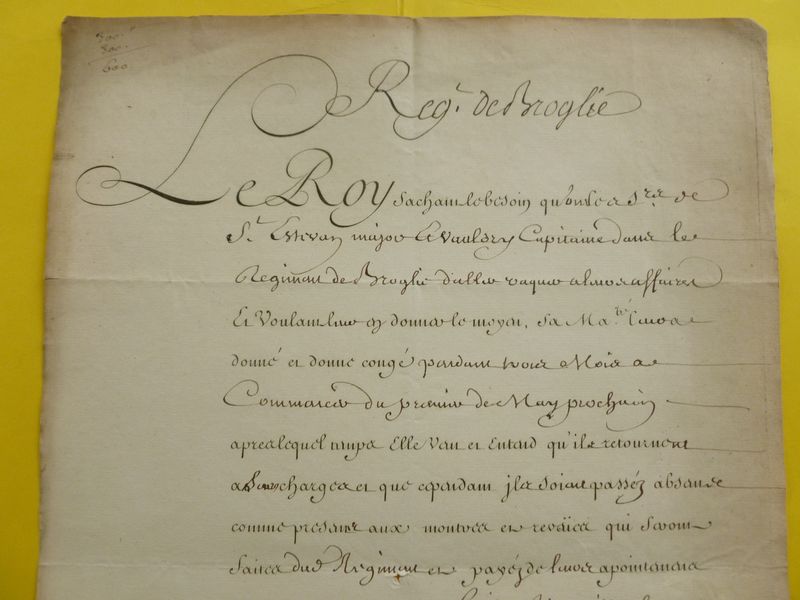 300.
300.
600
Regt. de Broglie
Le Roy sachant le besoin qu'ont les Srs. de
St. Estevan major Et Vauldry Capitaine dans le
Regiment de Broglie d'aller vaquer a leurs affaires
Et Voulant leur en donner le moyen, sa Mate. leur a
donné et donne congé pendant trois Mois a
Commancer du premier de May prochain
apres lequel temps Elle Veut et Entend qu'ils retournent
a leurs charges et que cependant jls soient passéz absens
comme presens aux montres et reveües qui seront
faites dud. Regiment et payéz de leurs apointemens